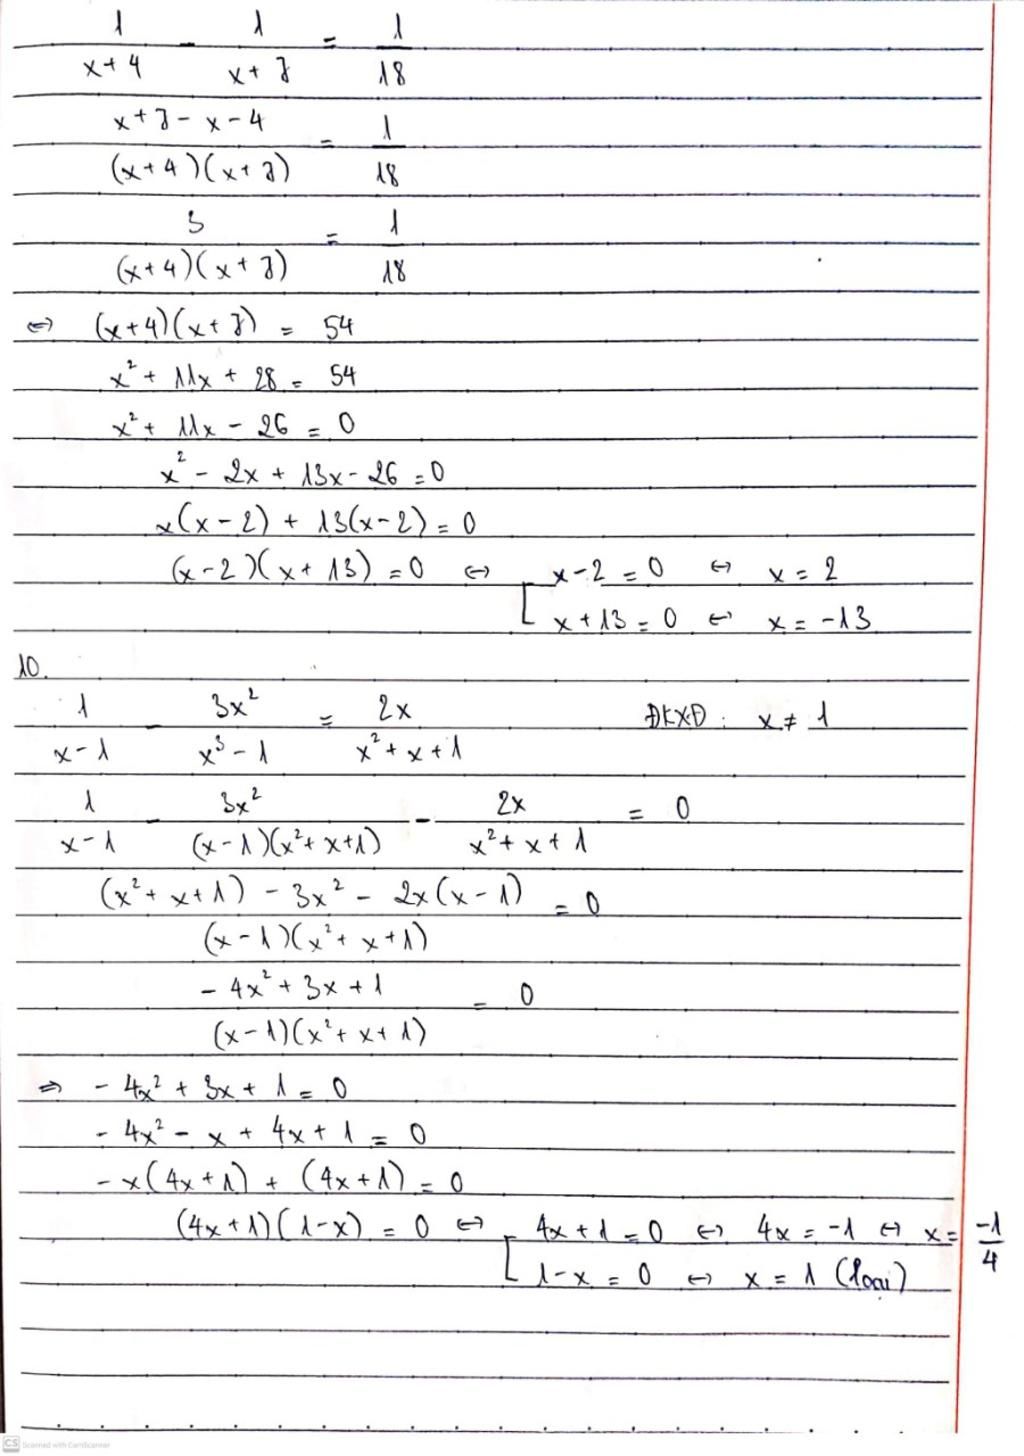 1/(x+4) - 1/(x+7) = 1/18
(x+7-x-4)/((x+4)(x+7)) = 1/18
3/((x+4)(x+7)) = 1/18
⇔ (x+4)(x+7) = 54
x² + 11x + 28 = 54
x² + 11x - 26 = 0
x² - 2x + 13x - 26 = 0
x(x-2) + 13(x-2) = 0
(x-2)(x+13) = 0 ⇔ [ x-2 = 0 ⇔ x = 2
x+13 = 0 ⇔ x = -13
10.
1/(x-1) - 3x²/(x³-1) = 2x/(x²+x+1) ĐKXĐ: x ≠ 1
1/(x-1) - 3x²/((x-1)(x²+x+1)) - 2x/(x²+x+1) = 0
((x²+x+1) - 3x² - 2x(x-1))/((x-1)(x²+x+1)) = 0
(-4x²+3x+1)/((x-1)(x²+x+1)) = 0
⇒ -4x² + 3x + 1 = 0
-4x² - x + 4x + 1 = 0
-x(4x+1) + (4x+1) = 0
(4x+1)(1-x) = 0 ⇔ [ 4x+1 = 0 ⇔ 4x = -1 ⇔ x = -1/4
1-x = 0 ⇔ x = 1 (loại)
CS Scanned with CamScanner